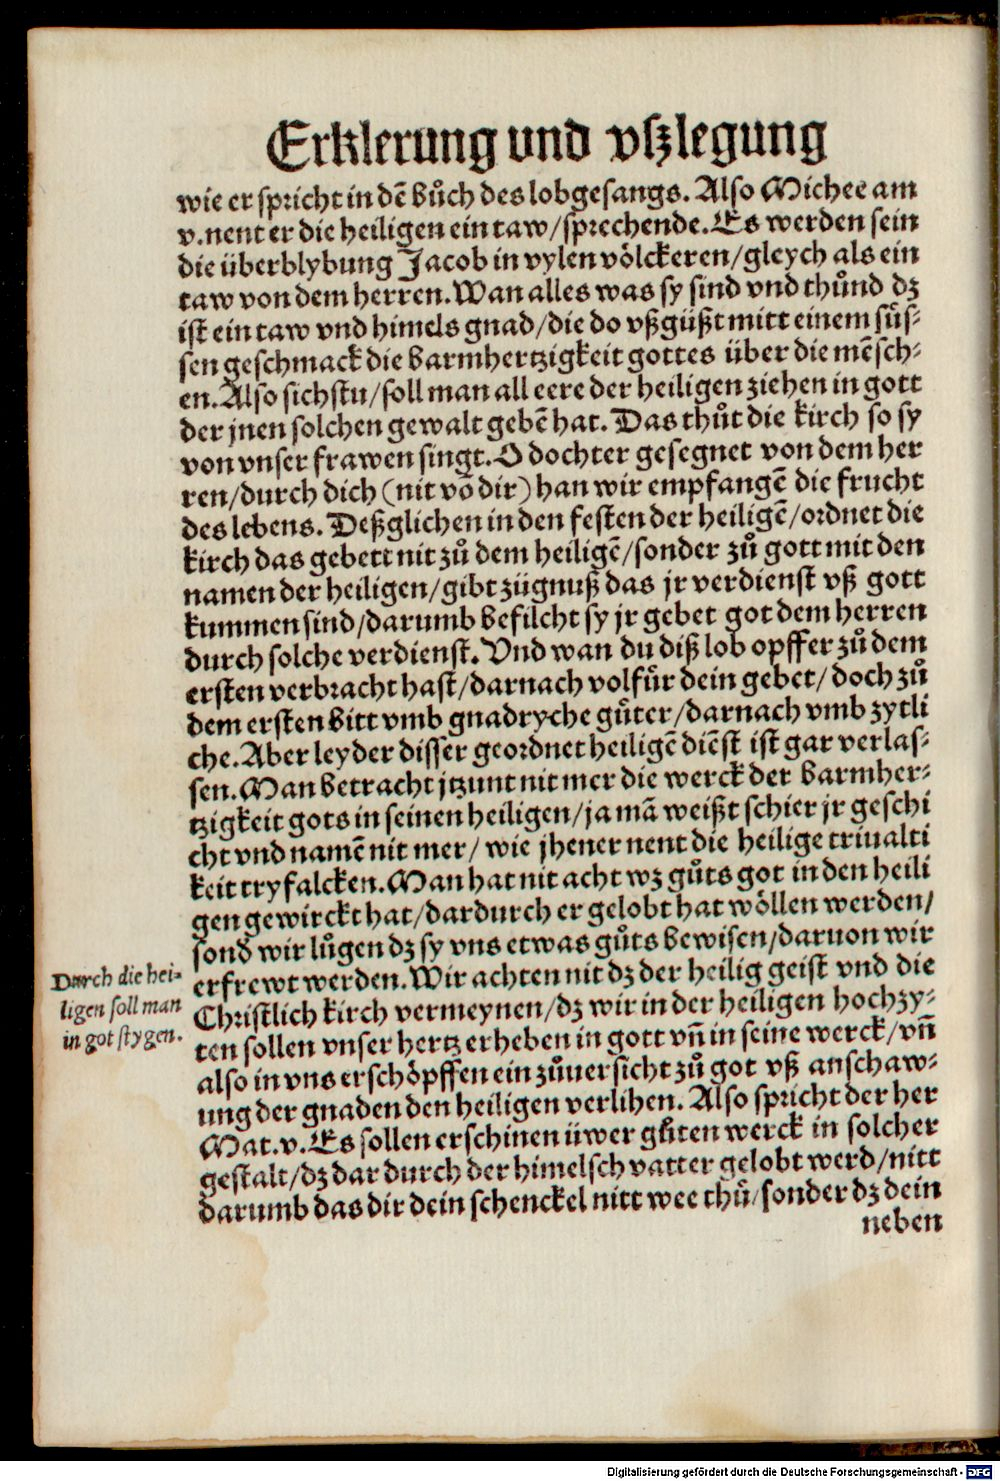 Erklerung und vſzlegung
wie er ſpricht in dē bůch des lobgeſangs. Alſo Michee am
v. nent er die heiligen ein taw/ſprechende. Es werden ſein
die überblybung Jacob in vylen völckeren/gleych als ein
taw von dem herren. Wan alles was ſy ſind vnd thůnd dz
iſt ein taw vnd himels gnad/die do vßgüßt mitt einem ſůſ⸗
ſen geſchmack die barmhertzigkeit gottes über die mēſch⸗
en. Alſo ſichſtu/ſoll man all eere der heiligen ziehen in gott
der jnen ſolchen gewalt gebē hat. Das thůt die kirch ſo ſy
von vnſer frawen ſingt. O dochter geſegnet von dem her
ren/durch dich (nit vō dir) han wir empfangē die frucht
des lebens. Deßglichen in den feſten der heiligē/ordnet die
kirch das gebett nit zů dem heiligē/ſonder zů gott mit den
namen der heiligen/gibt zügnuß das jr verdienſt vß gott
kummen ſind/darumb befilcht ſy jr gebet got dem herren
durch ſolche verdienſt. Vnd wan du diß lob opffer zů dem
erſten verbracht haſt/darnach volfůr dein gebet/doch zů
dem erſten bitt vmb gnadryche gůter/darnach vmb zytli
che. Aber leyder diſſer geordnet heiligē diēſt iſt gar verlaſ⸗
ſen. Man betracht jtzunt nit mer die werck der barmher⸗
tzigkeit gots in ſeinen heiligen/ja mā weißt ſchier jr geſchi
cht vnd namē nit mer/ wie jhener nent die heilige triualti
keit try falcken. Man hat nit acht wz gůts got in den heili
gen gewirckt hat/dardurch er gelobt hat wöllen werden/
ſond wir lůgen dz ſy vns etwas gůts bewiſen/daruon wir
erfrewt werden. Wir achten nit dz der heilig geiſt vnd die
Chriſtlich kirch vermeynen/dz wir in der heiligen hochzy⸗
ten ſollen vnſer hertz erheben in gott vn̄ in ſeine werck/vn̄
alſo in vns erſchöpffen ein zůuerſicht zů got vß anſchaw⸗
ung der gnaden den heiligen verlihen. Alſo ſpricht der her
Mat. v. Es ſollen erſchinen üwer gůten werck in ſolcher
geſtalt/dz dar durch der himelſch vatter gelobt werd/nitt
darumb das dir dein ſchenckel nitt wee thů/ſonder dz dein
neben
Durch die hei⸗
ligen ſoll man
in got ſtygen.
Digitalisierung gefördert durch die Deutsche Forschungsgemeinschaft - DFG